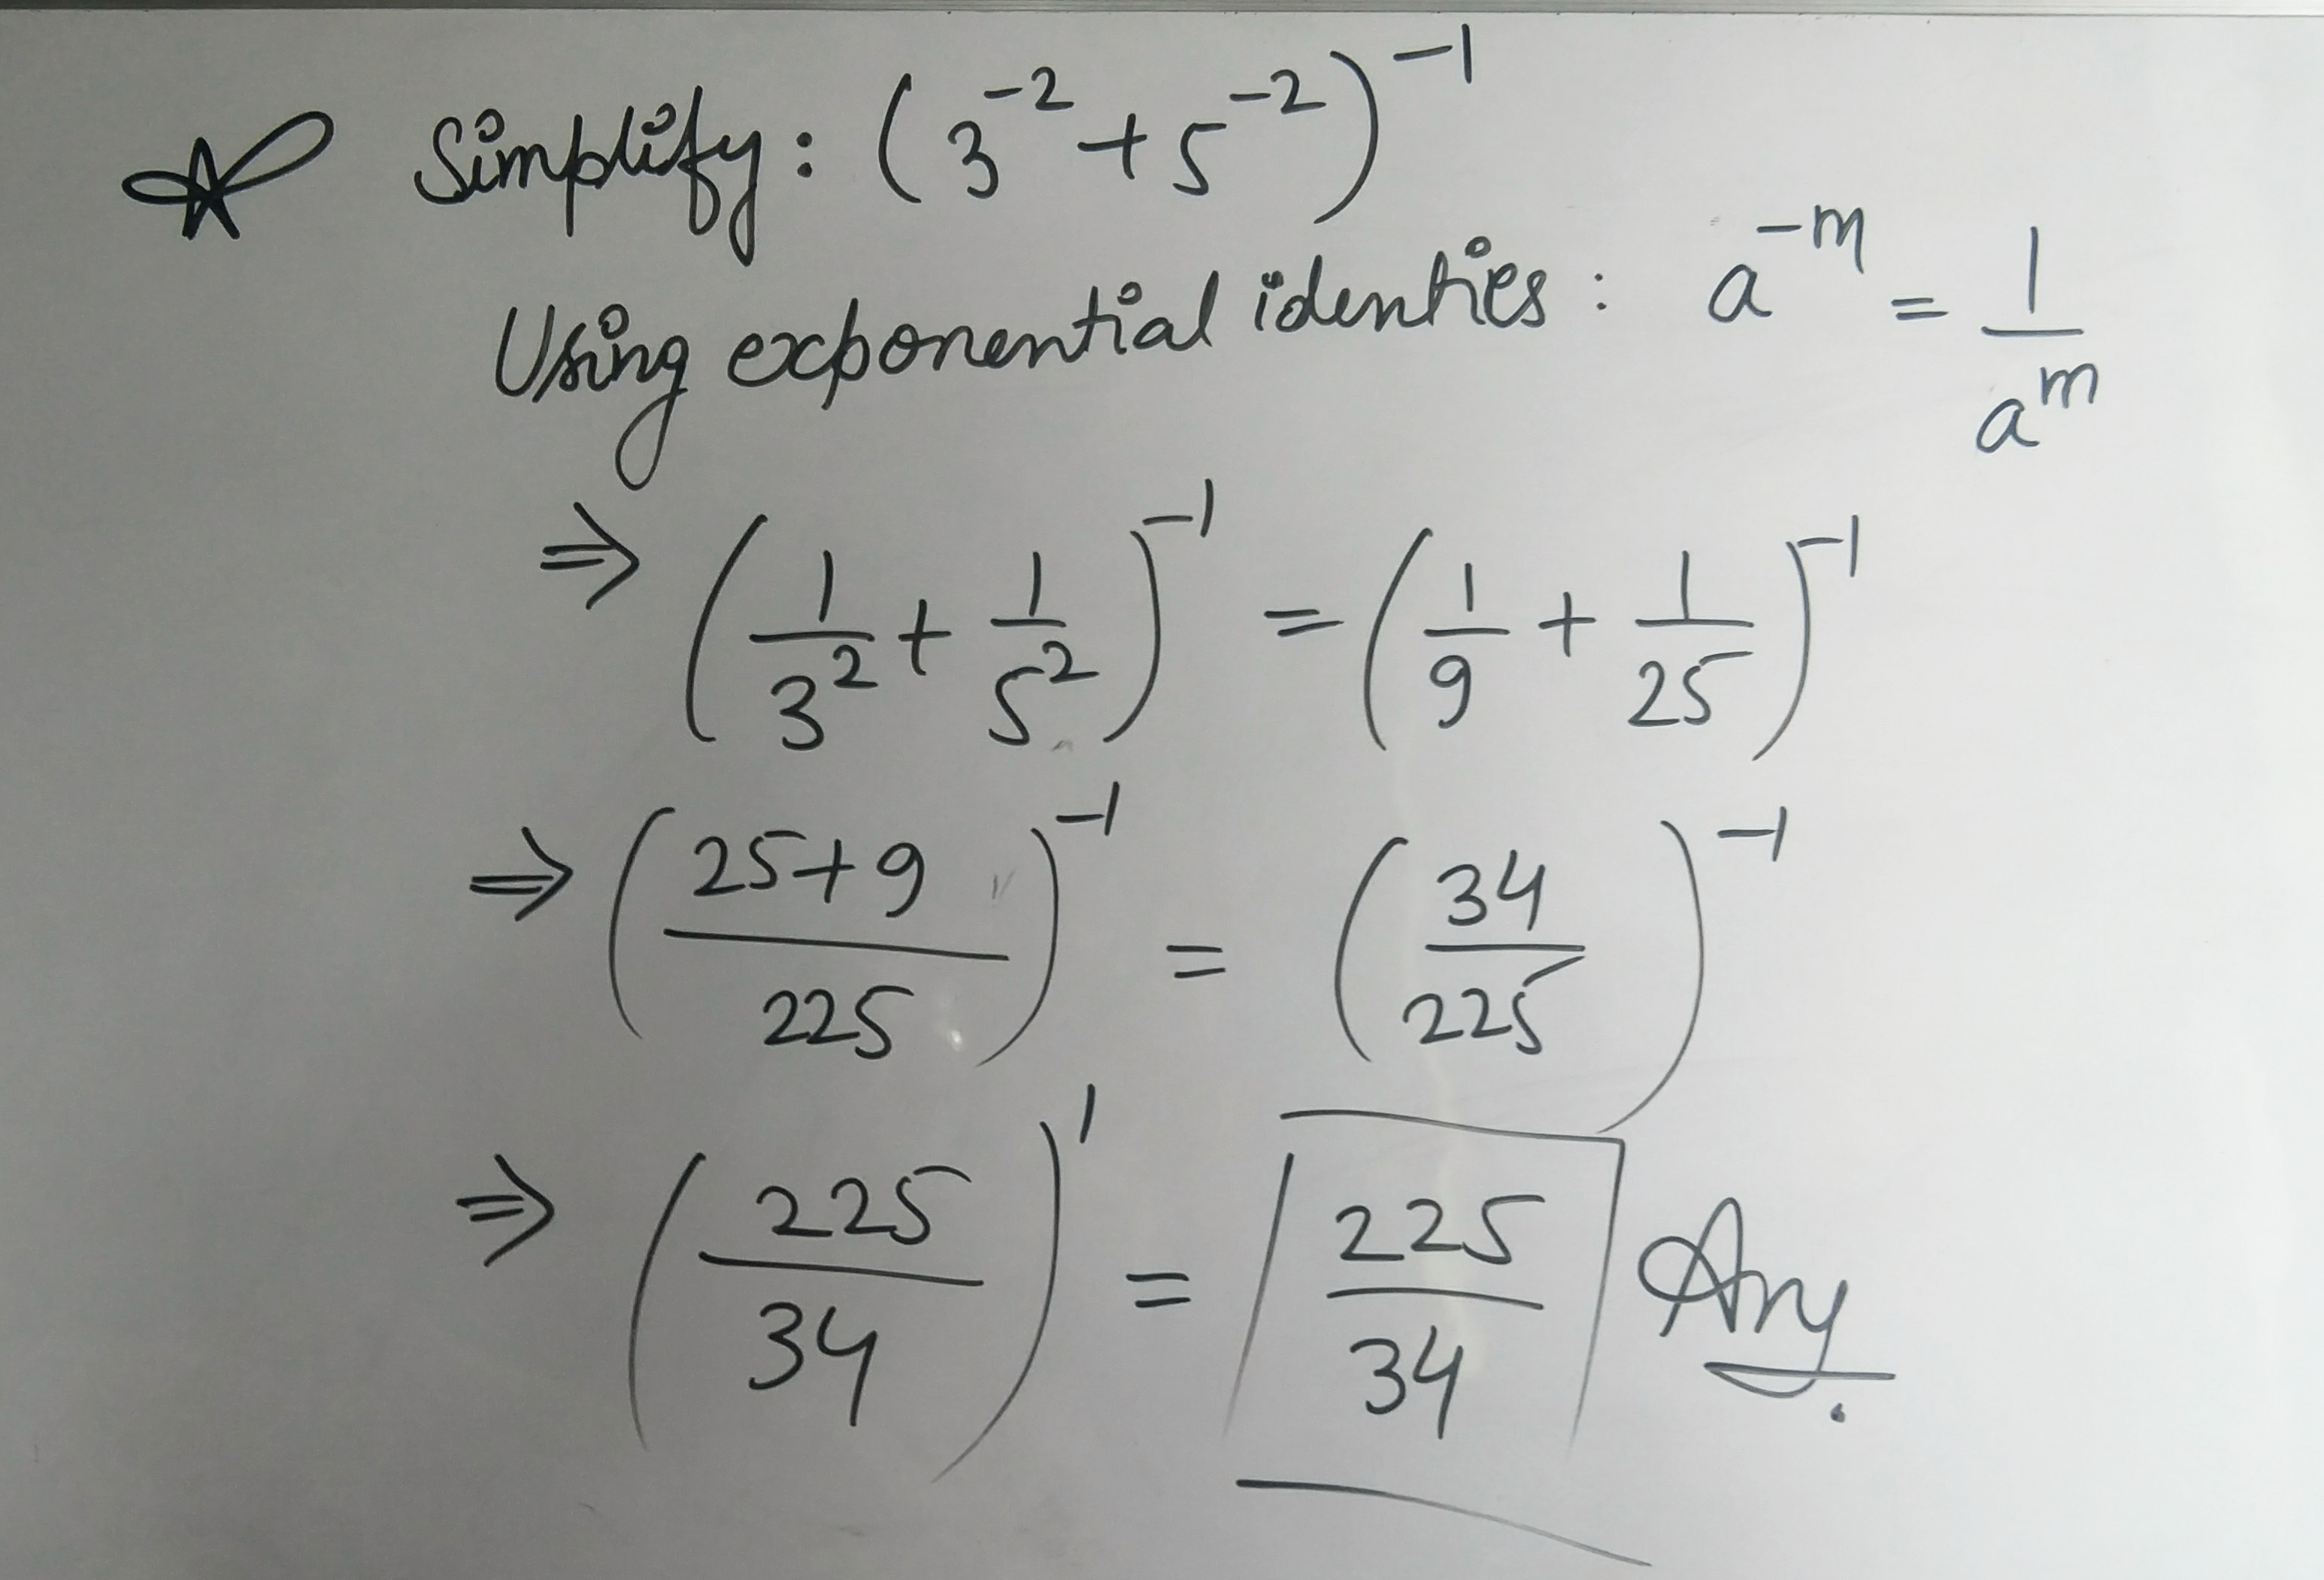 Simplify: (3⁻² + 5⁻²)⁻¹
Using exponential identies: a⁻ᵐ = 1/aᵐ
⇒ (1/3² + 1/5²)⁻¹ = (1/9 + 1/25)⁻¹
⇒ ((25+9)/225)⁻¹ = (34/225)⁻¹
⇒ (225/34)¹ = 225/34 Ans.